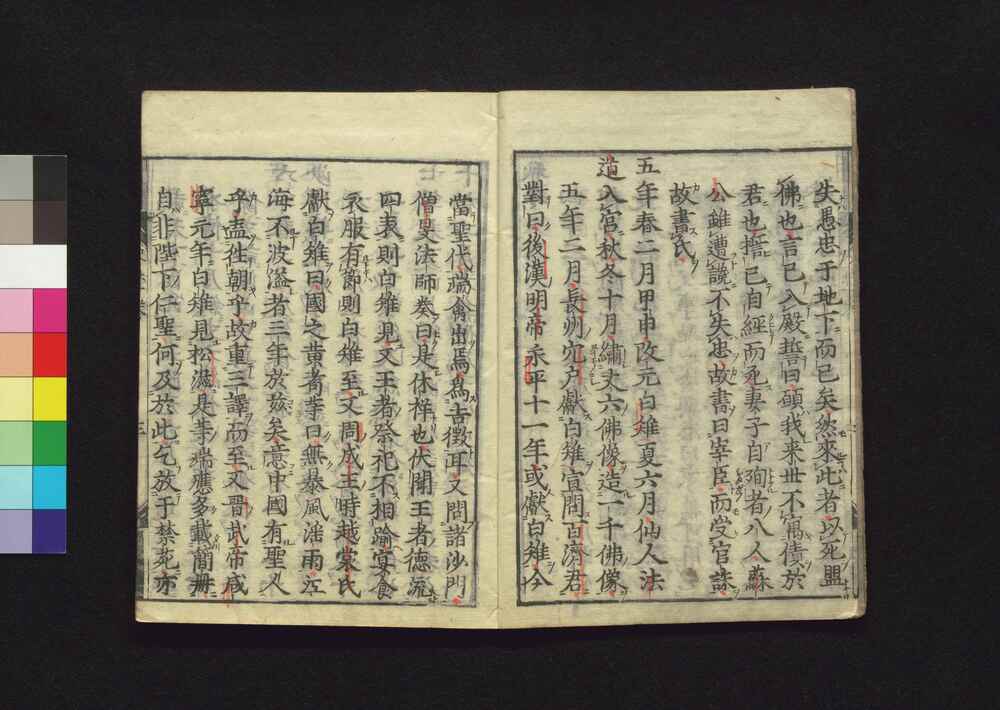 失愚忠于地下而已矣然來此者以死盟
佛也言已入殿誓曰願我来世不寓債於
君也誓已自經而死妻子自殉者八人蘇
公雖遭讒不失忠故書曰宰臣而受官誅
故書氏
五年春二月甲申改元白雉夏六月仙人法
道入宮秋冬十月繡丈六佛像造一千佛像
五年二月長州宍戸獻白雉宣問百濟君
對曰後漢明帝永平十一年或獻白雉今
當聖代瑞禽出焉為吉徴耳又問諸沙門
僧旻法師奏曰是休祥也伏聞王者德流
四表則白雉見又王者祭祀不相踰宴食
衣服有節則白雉至又周成王時越裳氏
獻白雉曰國之黄者等曰無暴風滛雨江
海不波溢者三年於茲矣意中國有聖人
乎盍徃朝乎故重三譯而至又晋武帝咸
寧元年白雉見松滋是等瑞應多載簡册
自非陛下仁聖何及於此乞放于禁苑亦